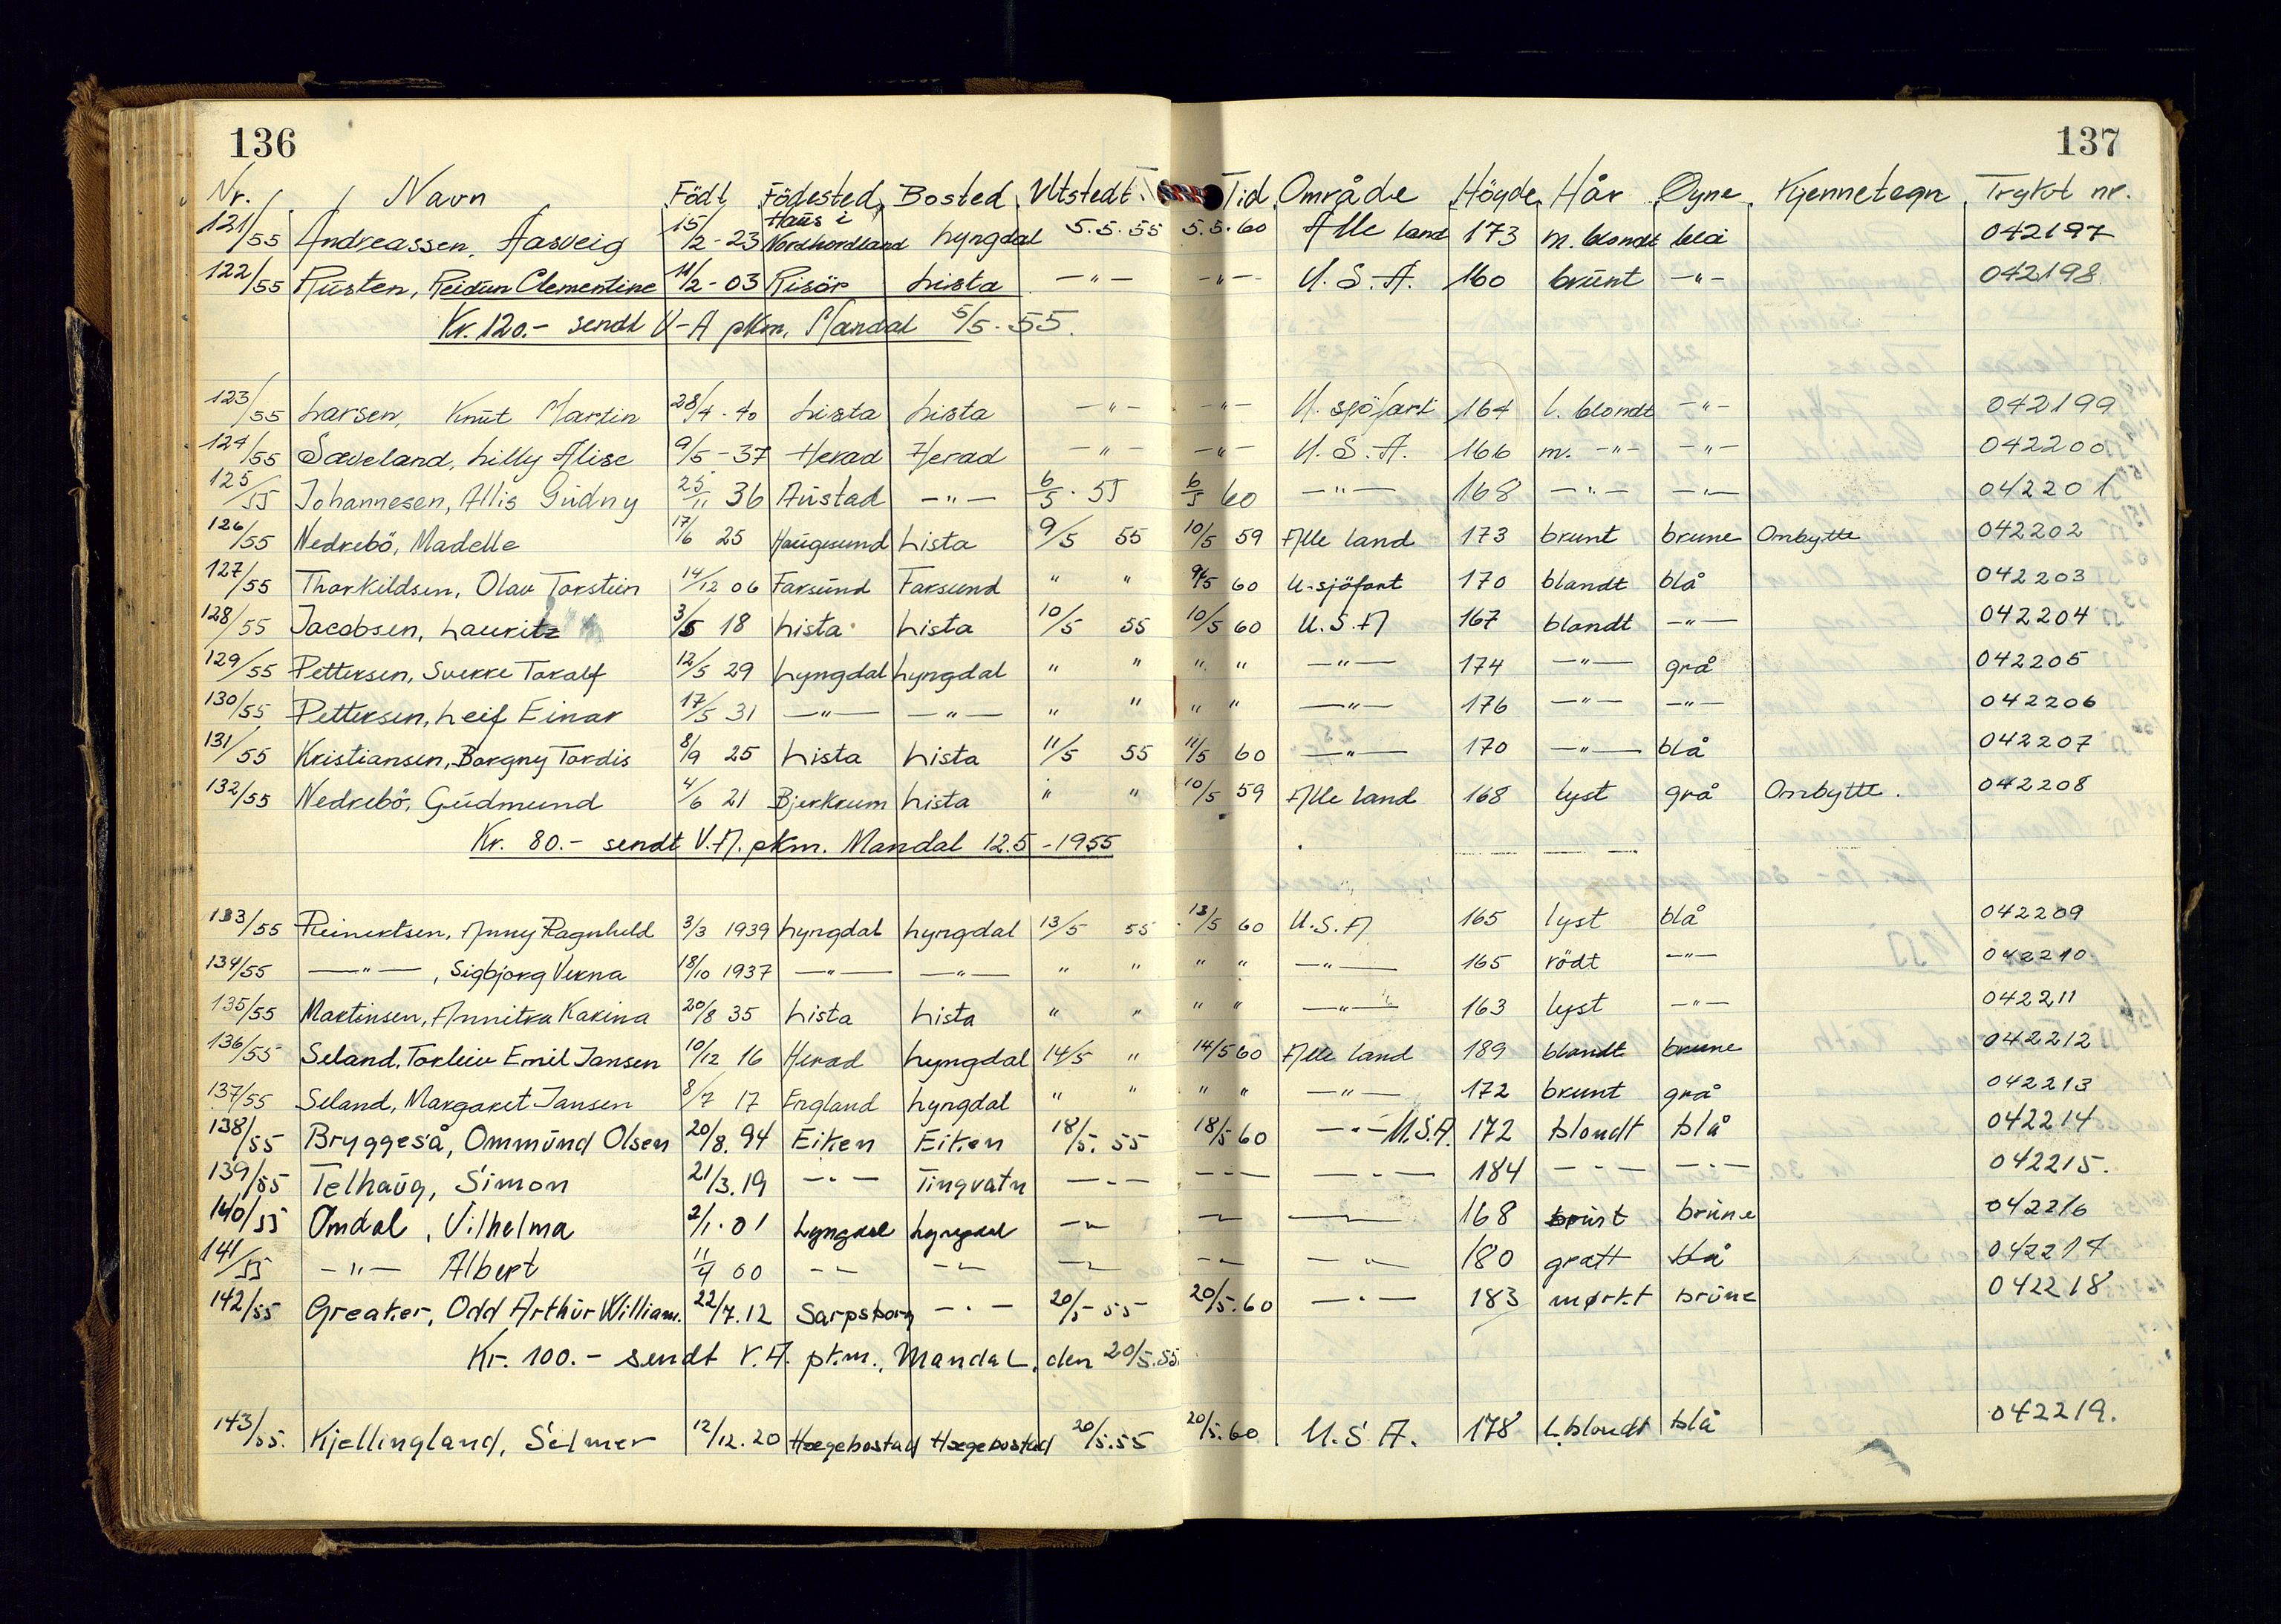 136
137
Nr. Navn Födt Födested Bosted Utstedt Tid Område Høyde Hår Øyne Kjennetegn Trykt nr.
121/55 Andreassen, Aasveig 15/2-23 Haus i Nordhordland Lyngdal 5.5.55 5.5.60 Alle land 173 m. blondt blå 042197
122/55 Rusten, Reidun Clementine 11/2-03 Risör Lista -"- -"- U.S.A. 160 brunt -"- 042198
Kr. 120.- sendt V-A pkm, Mandal 5/5-55.
123/55 Larsen, Knut Martin 28/4-40 Lista Lista -"- -"- U. sjöfart 164 l. blondt -"- 042199
124/55 Sæveland, Lilly Alise 9/5-37 Herad Herad -"- -"- U.S.A. 166 m. -"- -"- 042200
125/55 Johannesen, Allis Gudny 25/11 36 Austad -"- 6/5.55 6/5 60 -"- 168 -"- -"- 042201
126/55 Nedrebö, Madelle 17/6 25 Haugesund Lista 9/5 55 10/5 59 Alle land 173 brunt brune Ombytte 042202
127/55 Thorkildsen, Olav Torstein 14/12 06 Farsund Farsund " " 9/5 60 U-sjöfart 170 blondt blå 042203
128/55 Jacobsen, Lauritz 3/5 18 Lista Lista 10/5 55 10/5 60 U.S.A 167 blondt -"- 042204
129/55 Pettersen, Sverre Toralf 12/5 29 Lyngdal Lyngdal " " " " -"- 174 -"- grå 042205
130/55 Pettersen, Leif Einar 17/5 31 -"- -"- " " " " -"- 176 -"- -"- 042206
131/55 Kristiansen, Borgny Tordis 8/9 25 Lista Lista 11/5 55 11/5 60 -"- 170 -"- blå 042207
132/55 Nedrebö, Gudmund 4/6 21 Bjerkrum Lista " " 10/5 59 Alle land 168 lyst grå Ombytte. 042208
Kr. 80.- sendt V.A. pkm. Mandal 12.5-1955
133/55 Reinertsen, Anny Ragnhild 3/3 1939 Lyngdal Lyngdal 13/5 55 13/5 60 U.S.A 165 lyst blå 042209
134/55 -"-, Sigbjorg Verna 18/10 1937 -"- -"- " " " " -"- 165 rödt -"- 042210
135/55 Martinsen, Annitra Karina 20/8 35 Lista Lista " " " " -"- 163 lyst -"- 042211
136/55 Seland, Torleiv Emil Jansen 10/12 16 Herad Lyngdal 14/5 " 14/5 60 Alle land 189 blondt brune 042212
137/55 Seland, Margaret Jansen 8/7 17 England Lyngdal " " " " -"- 172 brunt grå 042213
138/55 Bryggeså, Ommund Olsen 20/8.94 Eiken Eiken 18/5.55 18/5 60 -"- U.S.A. 172 blondt blå 042214
139/55 Telhaug, Simon 21/3.19 -"- Tingvatn -"- -"- -"- 184 -"- -"- 042215.
140/55 Omdal, Vilhelma 2/1.01 Lyngdal Lyngdal -"- -"- -"- 168 brunt brune 042216
141/55 -"- Albert 11/4 00 -"- -"- -"- -"- -"- 180 grått blå 042217
142/55 Greaker, Odd Arthur William. 22/7.12 Sarpsborg -"- 20/5-55 20/5.60 -"- 183 mørkt brune 042218
Kr. 100.- sendt V.A. pkm., Mandal, den 20/5.55.
143/55. Kjellingland, Selmer 12/12.20 Hægebostad Hægebostad 20/5.55 20/5.60 U.S.A. 178 L.blondt blå 042219.